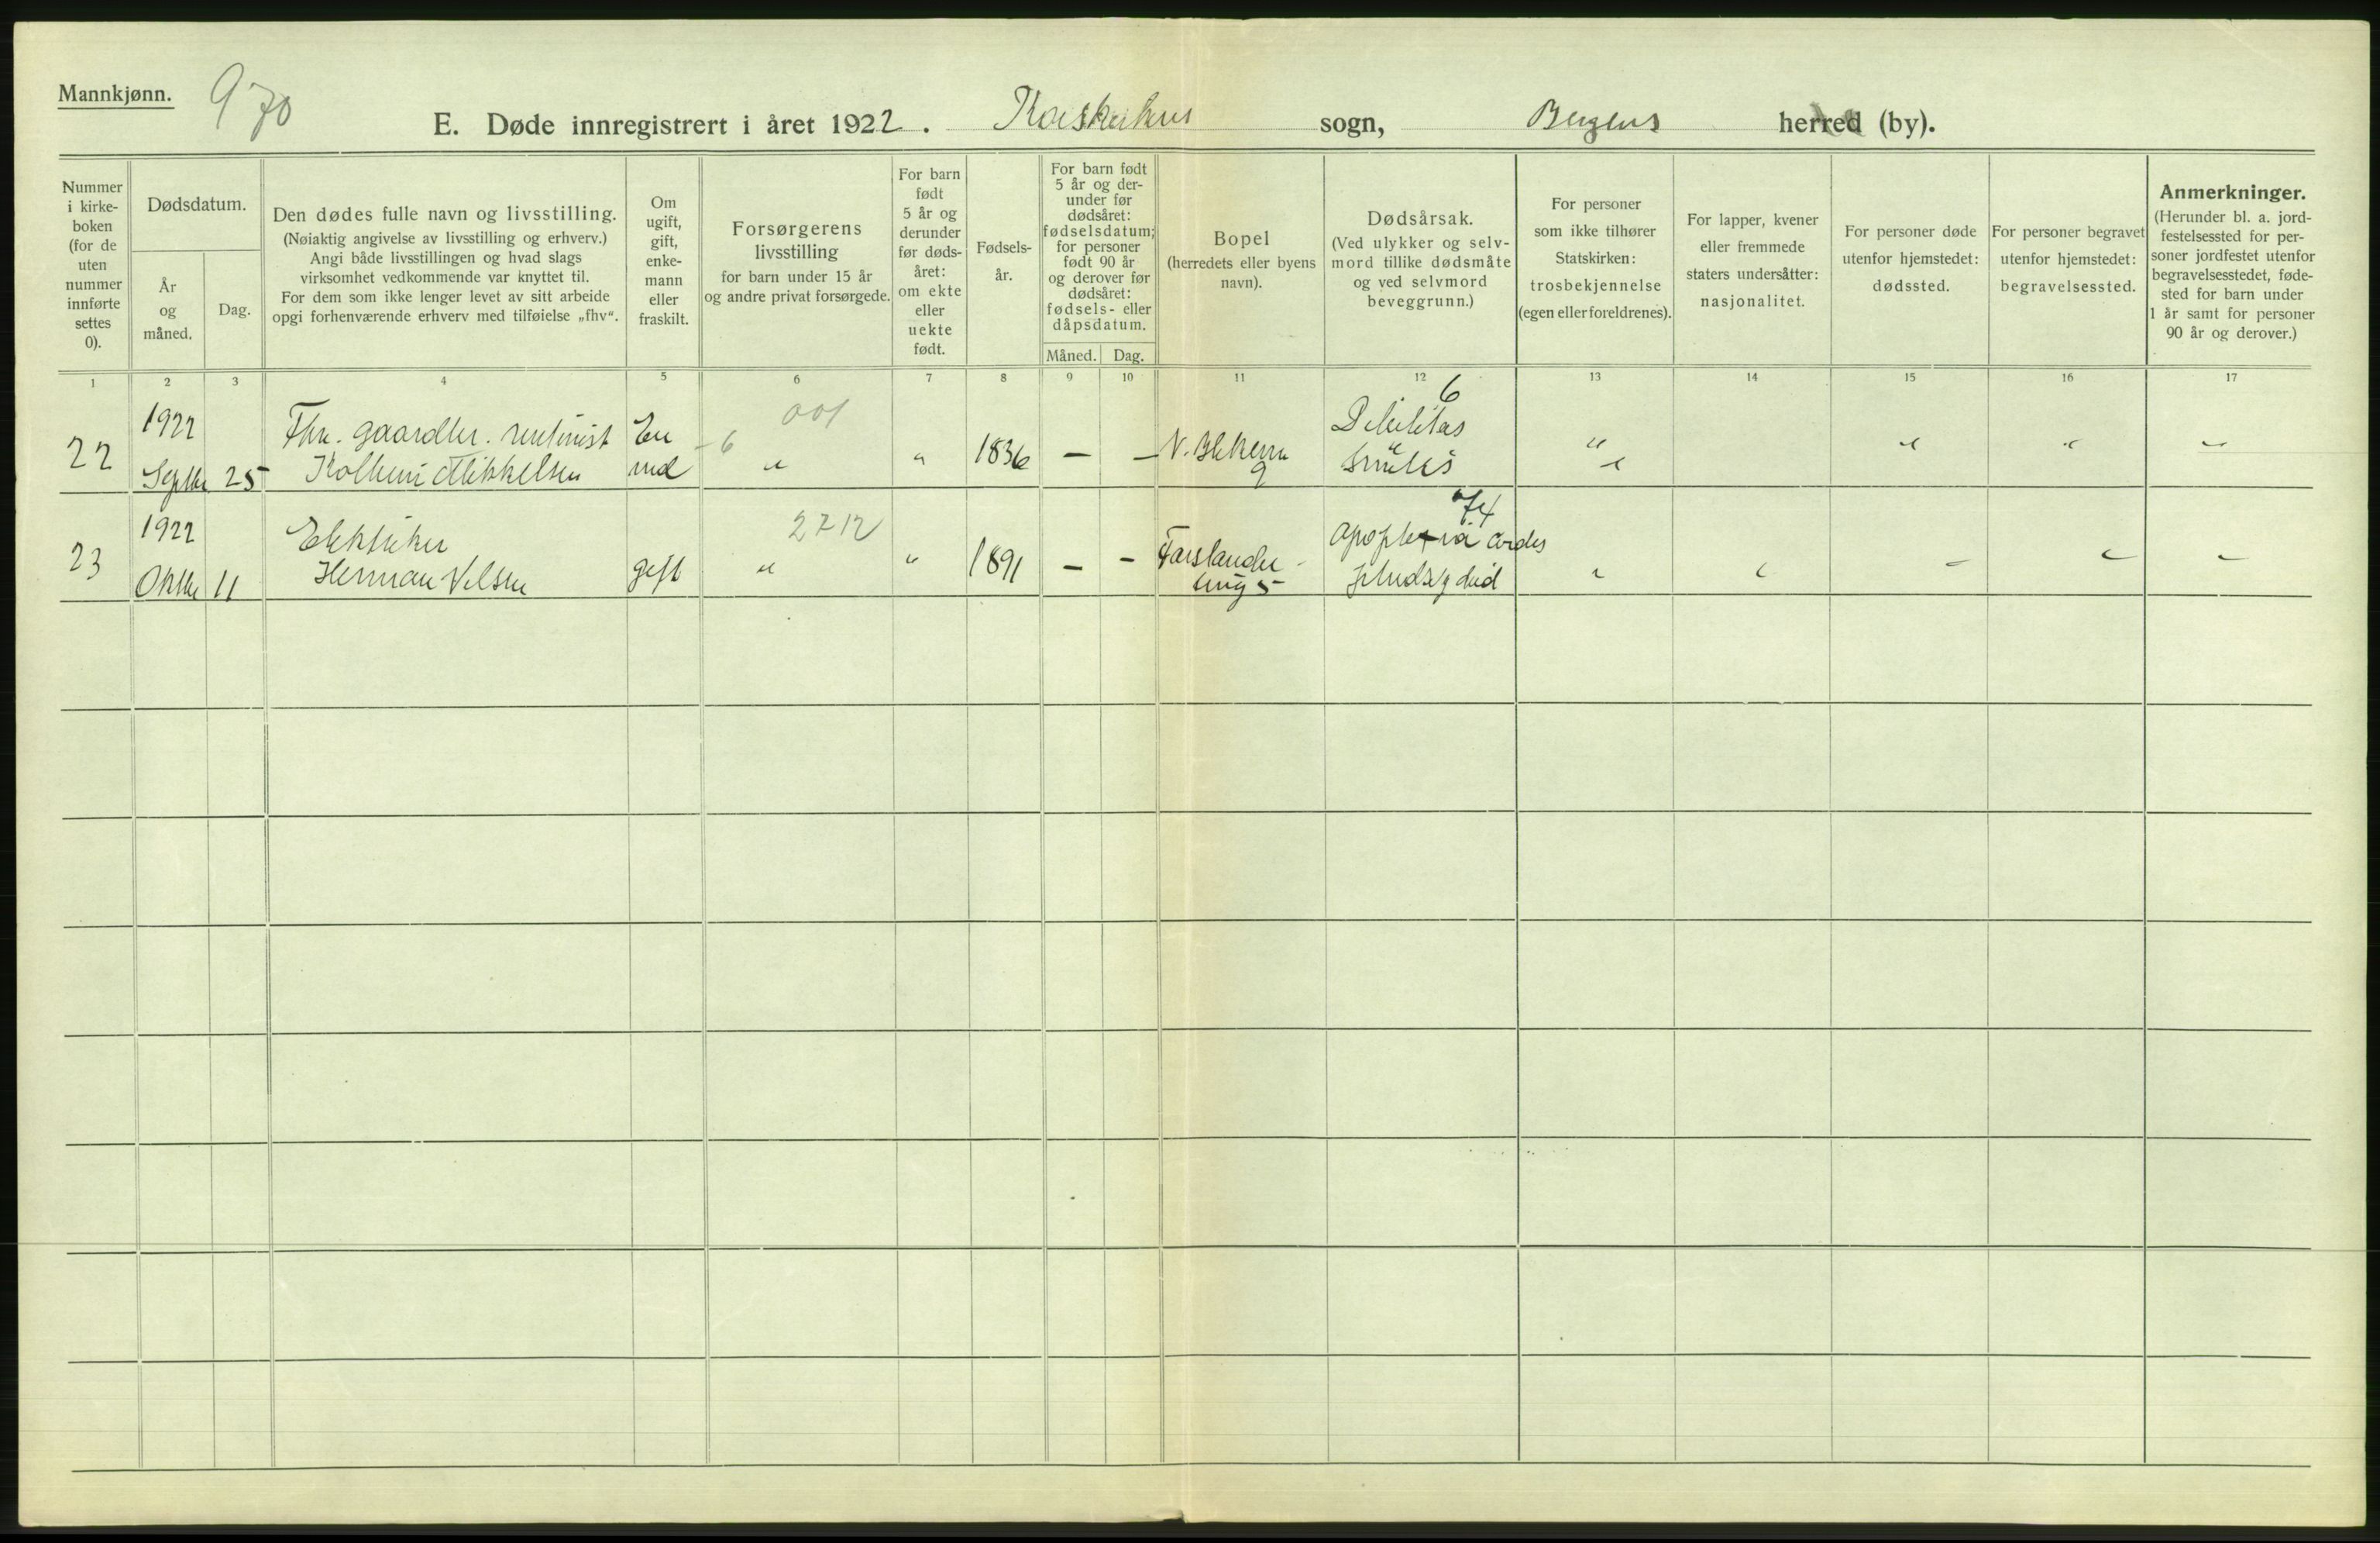 Mannkjønn.
970
E. Døde innregistrert i året 1922. Korskirkens sogn, Bergens herred (by).
Nummer
i kirke-
boken
(for de
uten
nummer
innførte
settes
0).
Dødsdatum.
År
og
måned.
Dag.
Den dødes fulle navn og livsstilling.
(Nøiaktig angivelse av livsstilling og erhverv.)
Angi både livsstillingen og hvad slags
virksomhet vedkommende var knyttet til.
For dem som ikke lenger levet av sitt arbeide
opgi forhenværende erhverv med tilføielse „fhv“.
Om
ugift,
gift,
enke-
mann
eller
fraskilt.
Forsørgerens
livsstilling
for barn under 15 år
og andre privat forsørgede.
For barn
født
5 år og
derunder
før døds-
året:
om ekte
eller
uekte
født.
Fødsels-
år.
For barn født
5 år og der-
under før
dødsåret:
fødselsdatum;
for personer
født 90 år
og derover før
dødsåret:
fødsels- eller
dåpsdatum.
Måned. Dag.
Bopel
(herredets eller byens
navn).
Dødsårsak.
(Ved ulykker og selv-
mord tillike dødsmåte
og ved selvmord
beveggrunn.)
For personer
som ikke tilhører
Statskirken:
trosbekjennelse
(egen eller foreldrenes).
For lapper, kvener
eller fremmede
staters undersåtter:
nasjonalitet.
For personer døde
utenfor hjemstedet:
dødssted.
For personer begravet
utenfor hjemstedet:
begravelsessted.
Anmerkninger.
(Herunder bl. a. jord-
festelsessted for per-
soner jordfestet utenfor
begravelsesstedet, føde-
sted for barn under
1 år samt for personer
90 år og derover.)
1 2 3 4 5 6 7 8 9 10 11 12 13 14 15 16 17
22
1922
Septbr 25
Fhv. gaardbr. rentenist
Mikkelsen
En
md
001
-6 "
"
1836
—
—
N.
9
6
Debilitas
senilis
" " " " "
23
1922
Oktbr 11
Elektriker
Herman Nilsen
gift
2712
"
"
1891
—
—
5
74
apoplexia cordis
pludselig død
" " — " —